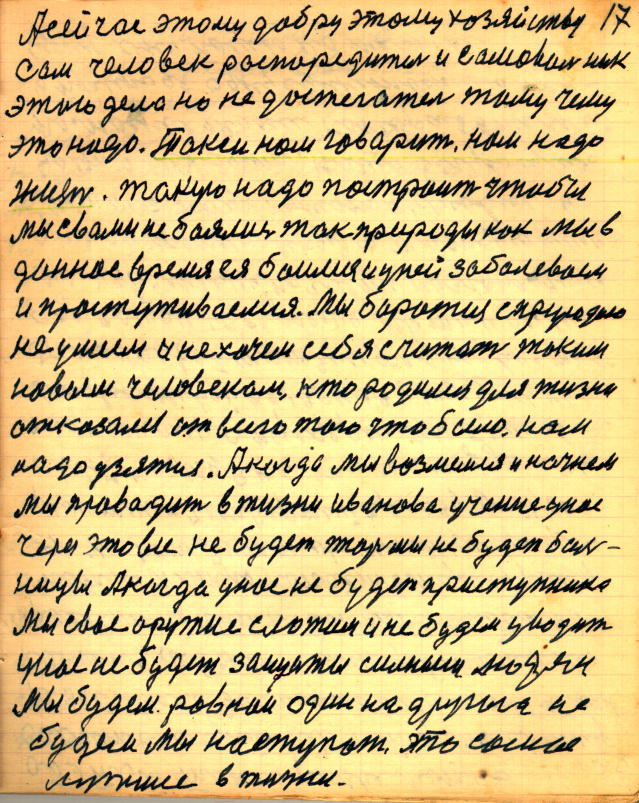 А сейчас этому добру этому хозяйству 17
сам человек распоредител и самовольник
этого дела но не достегател тому чему
это надо. Такси нам говарит, нам надо
жизн. такую надо построит чтобы
мы свами не боялис так природы как мы в
данное время ея боимся и уней заболеваем
и простуживаемся. Мы боротся сприродою
не умеем и нехочем себя считат таким
новым человеком, кто родился для жизни
отказался от всего того что было. нам
надо узятся. А когда мы возмемся и начнем
мы проводит в жизни иванова учение унас
через это все не будет тюрмы не будет бол-
ницы А когда унас не будет приступника
мы свае оружие сложим и не будем уводит
унас не будет защиты сильных людей
мы будем. ровным один на другога не
будем мы наступат. это самое
лутшие в жизни.